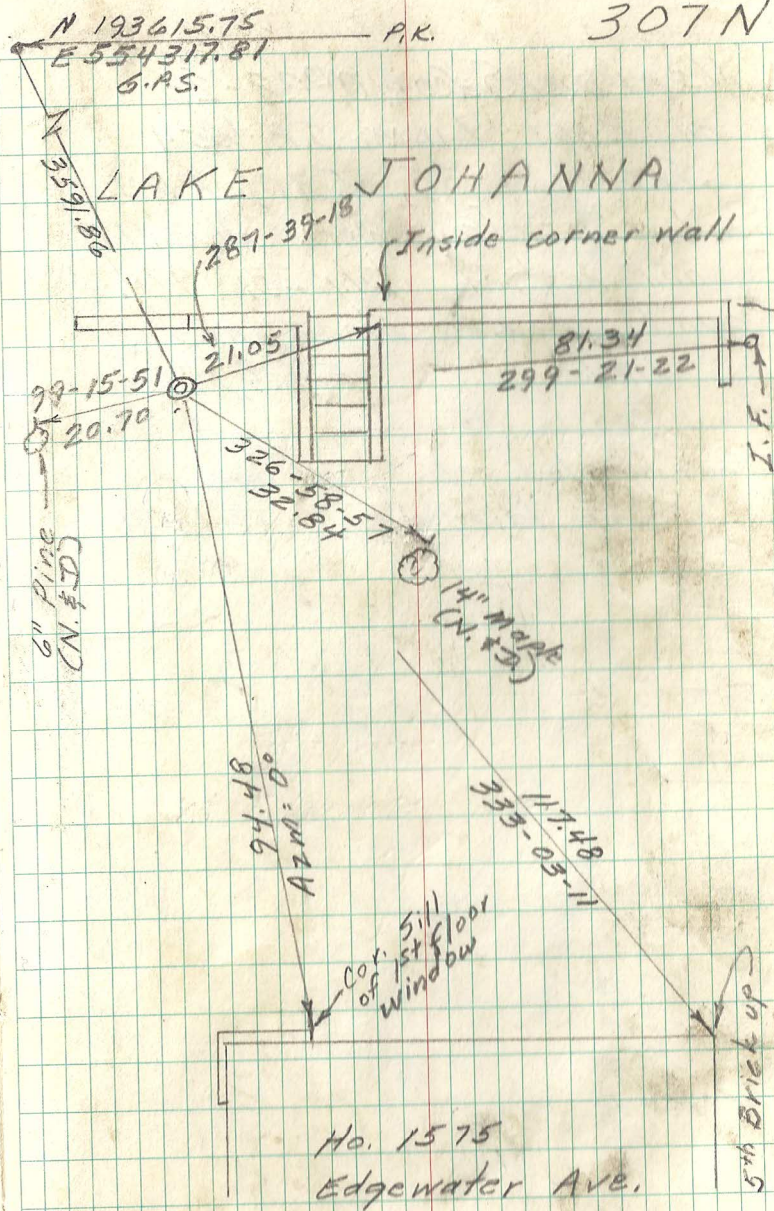 307 N
N 193615.75
P.K.
E 554317.81
G.P.S.
3591.86
LAKE JOHANNA
287-39-18
Inside corner wall
21.05
81.34
299-21-22
I.F.
99-15-51
20.70
326-58-57
32.84
6" Pine
(N. & D)
14" Maple
(N. & D)
94.48
Azm = 0°
117.48
333-03-11
Cor. Sill
of 1st floor
window
5th Brick up
Ho. 1575
Edgewater Ave.